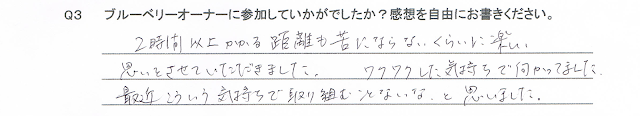 Q3 ブルーベリーオーナーに参加していかがでしたか？感想を自由にお書きください。
2時間以上かかる距離も苦にならないくらいに楽しい
思いをさせていただきました。 ワクワクした気持ちで向かってました。
最近こういう気持ちで取り組むことないな、と思いました。